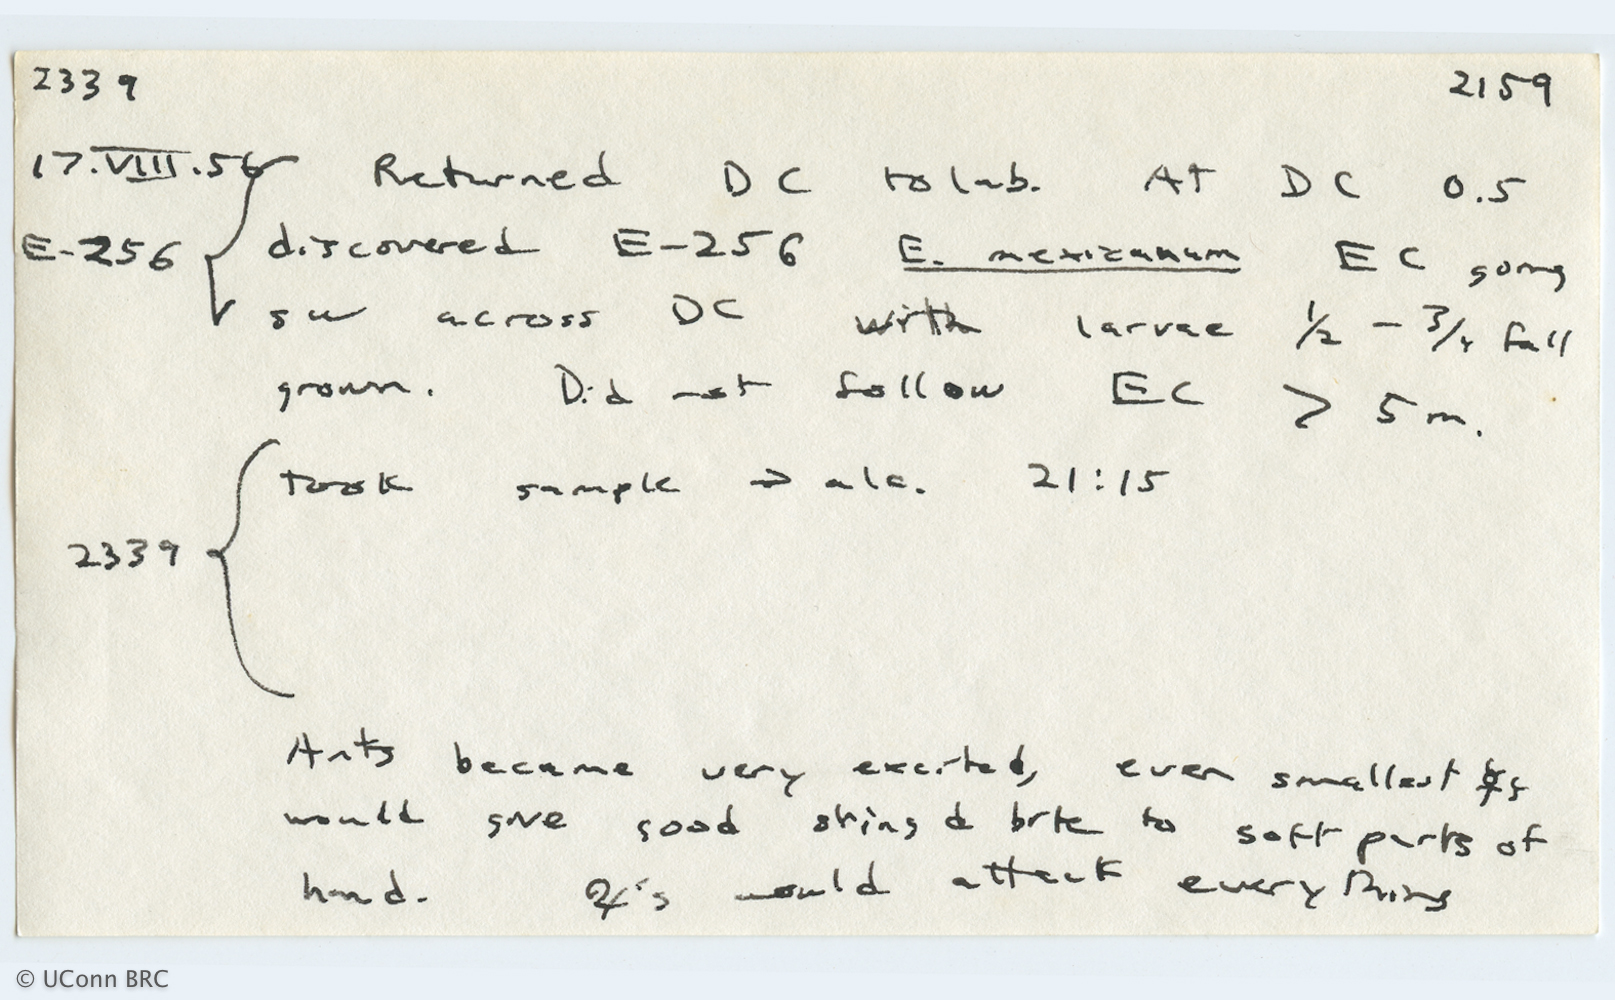 2339 2159
17.VIII.56 Returned DC to lab. At DC 0.5
E-256 discovered E-256 E. mexicanum EC going
sw across DC with larvae 1/2 - 3/4 full
grown. Did not follow EC > 5 m.
took sample → alc. 21:15
2339
Ants became very excited, even smallest ☿s
would give good sting & bite to soft parts of
hand. ☿'s would attack everything
© UConn BRC